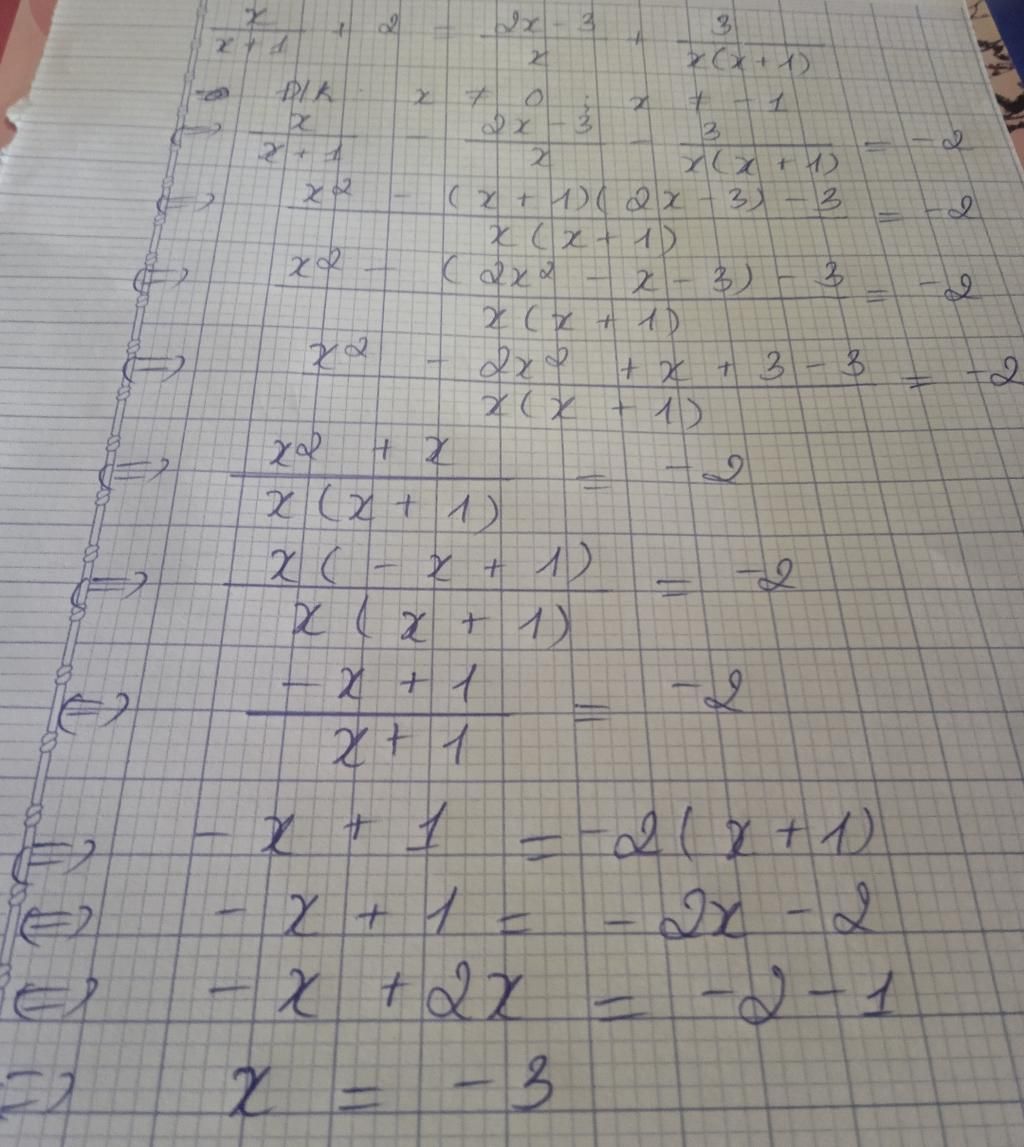 x/(x + 1) + 2 = (2x - 3)/x + 3/(x(x + 1))
Đ/K x ≠ 0 ; x ≠ -1
⇔ x/(x + 1) - (2x - 3)/x - 3/(x(x + 1)) = -2
⇔ (x² - (x + 1)(2x - 3) - 3)/(x(x + 1)) = -2
⇔ (x² - (2x² - x - 3) - 3)/(x(x + 1)) = -2
⇔ (x² - 2x² + x + 3 - 3)/(x(x + 1)) = -2
⇔ (x² + x)/(x(x + 1)) = -2
⇔ (x(-x + 1))/(x(x + 1)) = -2
⇔ (-x + 1)/(x + 1) = -2
⇔ -x + 1 = -2(x + 1)
⇔ -x + 1 = -2x - 2
⇔ -x + 2x = -2 - 1
⇔ x = -3